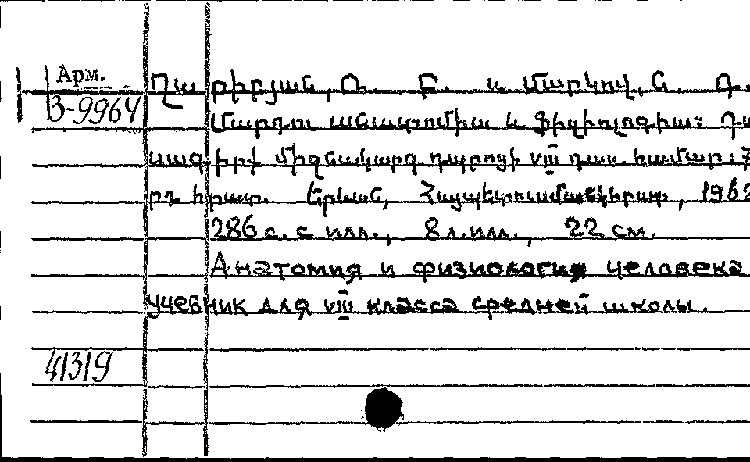 Арм.
В-9964
և Մարկով, Ն. Դ.
Մարդու անատոմիա և ֆիզիոլոգիա:
միջնակարգ դպրոցի VIII դաս. համար:
րդ հրատ. Երևան, Հայպետուսմանկհրատ.,
286 с. с илл., 8 л. илл., 22 см.
Анатомия и физиология человека
учебник для VIII класса средней школы.
41319